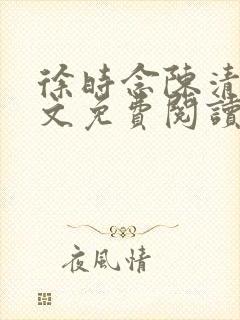 徐時念陳清
文免費閱讀
夜風情